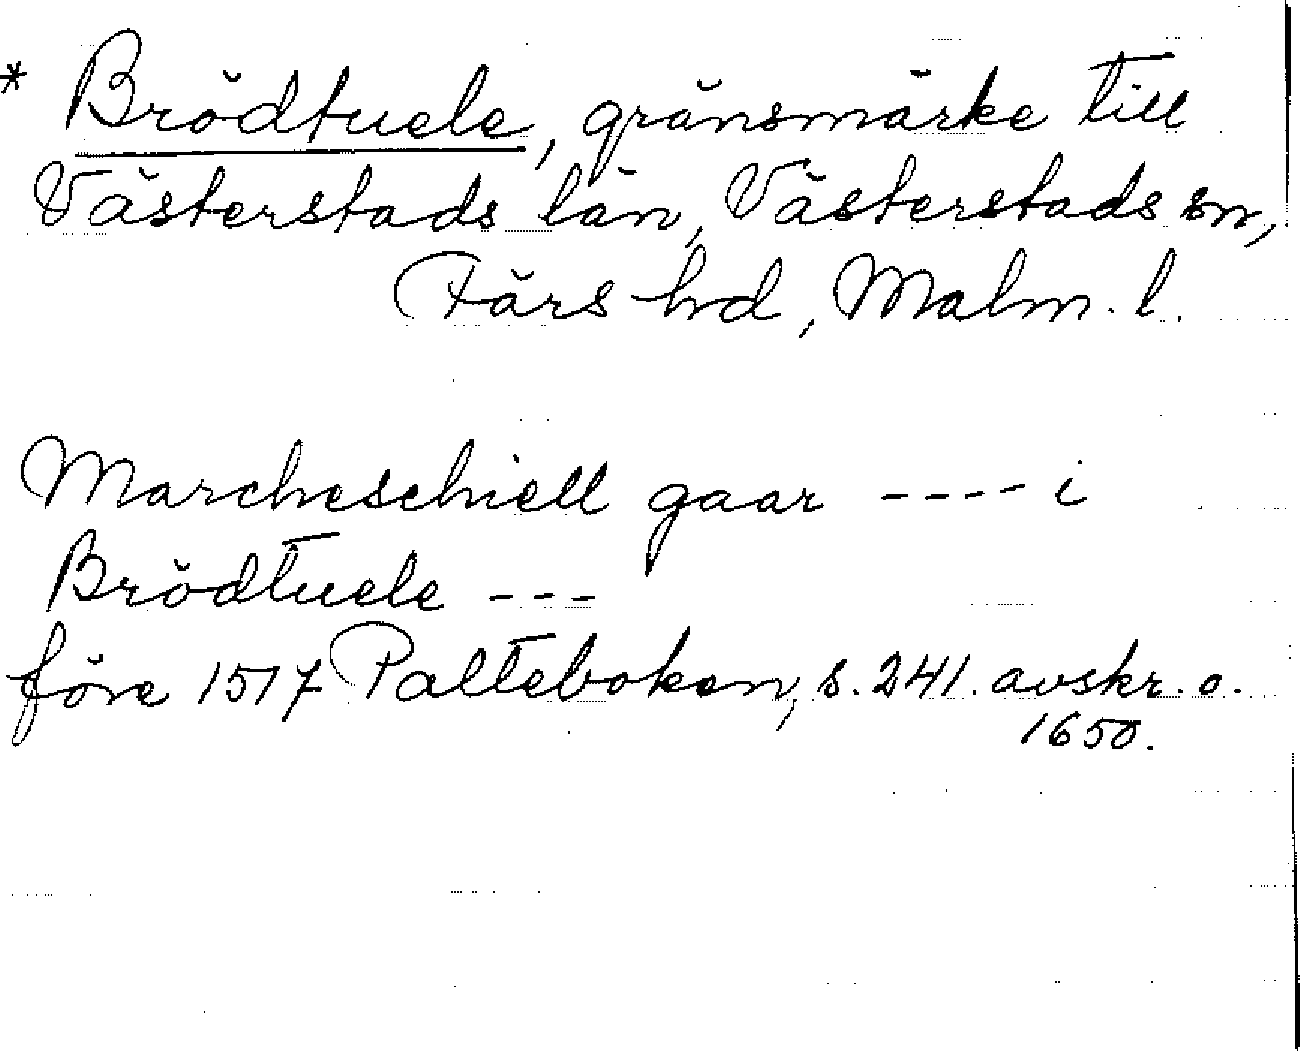 * Brödtuele, gränsmärke till
Västerstads län, Västerstads sn,
Färs hd, Malm. l.
Marcheschiell gaar ---- i
Brödtuele ---
före 1517 Palteboken, s. 241. avskr. o.
1650.